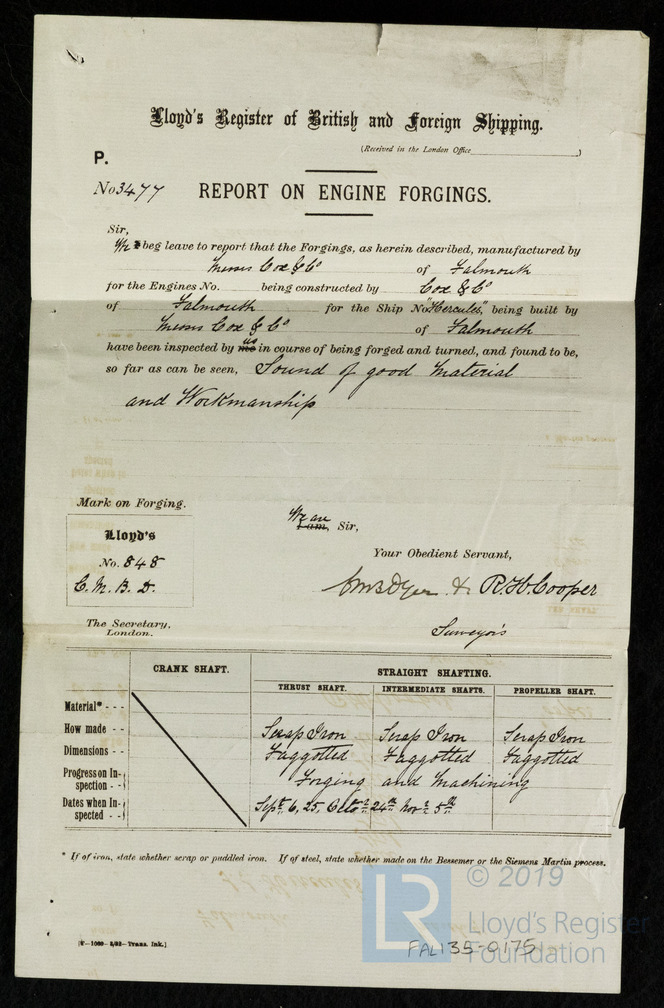 Lloyd's Register of British and Foreign Shipping.
(Received in the London Office )
P.
No 3477 REPORT ON ENGINE FORGINGS.
Sir,
We beg leave to report that the Forgings, as herein described, manufactured by
Messrs Cox & Co of Falmouth
for the Engines No. being constructed by Cox & Co
of Falmouth for the Ship No "Hercules", being built by
Messrs Cox & Co of Falmouth
have been inspected by me us in course of being forged and turned, and found to be,
so far as can be seen, Sound of good Material
and Workmanship
Mark on Forging.
Lloyd's
No. 848
C. M. B. D.
We are
I am, Sir,
Your Obedient Servant,
& R. H. Cooper
Surveyors
The Secretary,
London.
CRANK SHAFT. STRAIGHT SHAFTING.
THRUST SHAFT. INTERMEDIATE SHAFTS. PROPELLER SHAFT.
Material* - - -
How made - - Scrap Iron Scrap Iron Scrap Iron
Dimensions - - Faggotted Faggotted Faggotted
Progress on In-spection - - Forging and Machining
Dates when In-spected - - Sept. 6, 25, Octor 24th Novr 5th
* If of iron, state whether scrap or puddled iron. If of steel, state whether made on the Bessemer or the Siemens Martin process.
© 2019
LR Lloyd's Register
Foundation
FAL135-0175